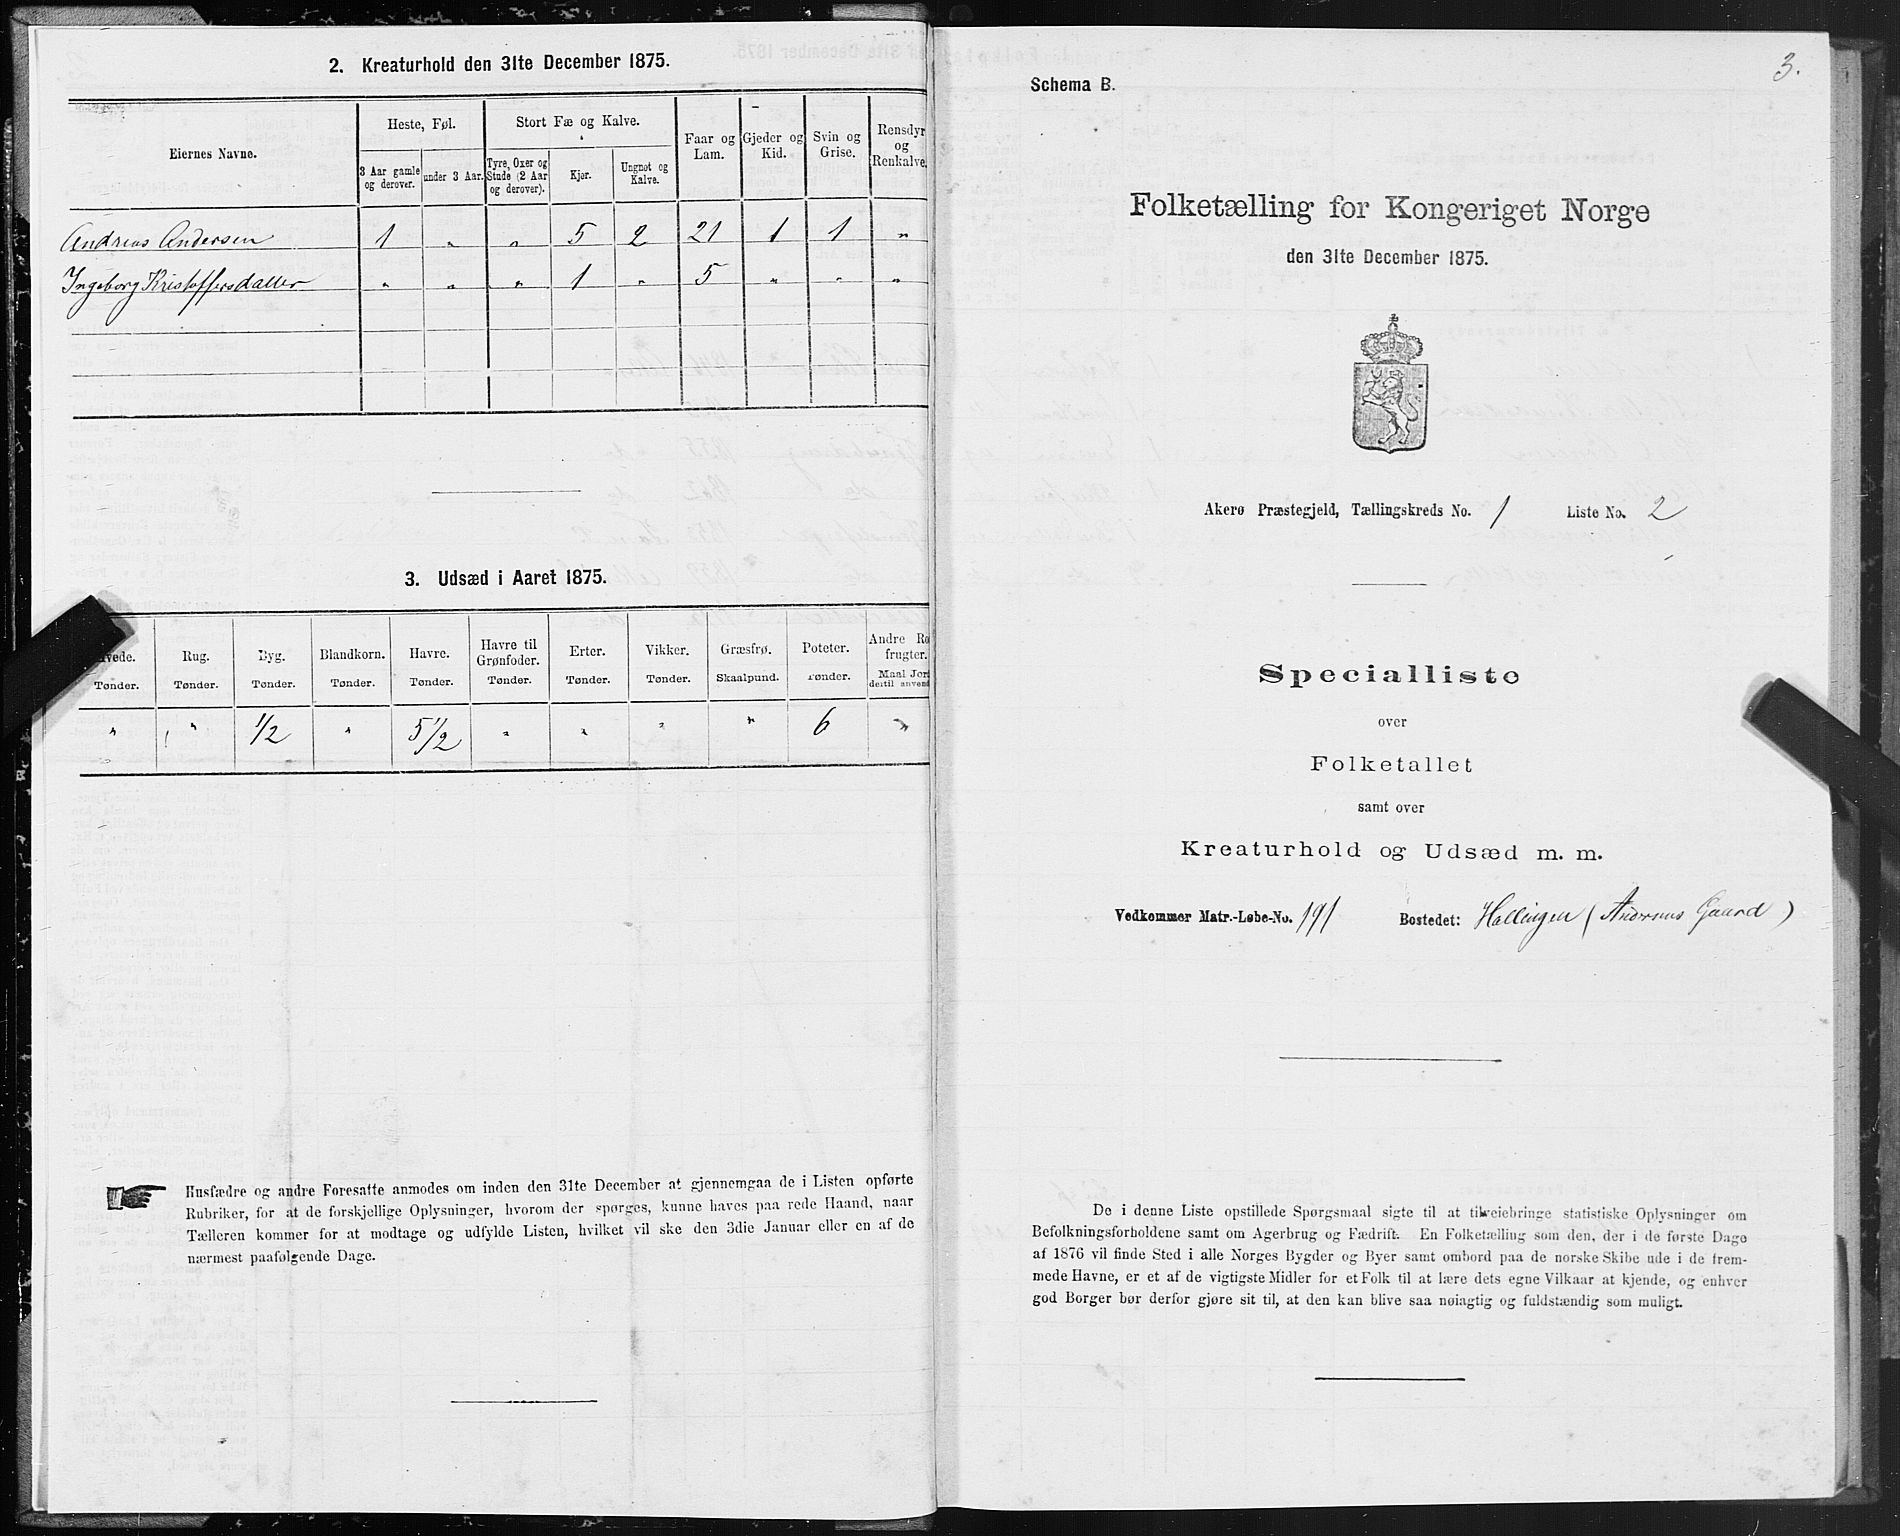 2. Kreaturhold den 31te December 1875.
Eiernes Navne.
Heste, Føl.
Stort Fæ og Kalve.
Faar og Lam.
Gjeder og Kid.
Svin og Grise.
Rensdyr og Renkalve.
3 Aar gamle og derover.
under 3 Aar.
Tyre, Oxer og Stude (2 Aar og derover).
Kjør.
Ungnøt og Kalve.
Andreas Andersen 1 " " 5 2 21 1 1 "
Ingeborg Kristoffersdatter " " " 1 " 5 " " "
3. Udsæd i Aaret 1875.
vede. Rug. Byg. Blandkorn. Havre. Havre til Grønfoder. Erter. Vikker. Græsfrø. Poteter. Andre Ro frugter.
Tønder. Tønder. Tønder. Tønder. Tønder. Tønder. Tønder. Tønder. Skaalpund. Tønder. Maal Jord dertil anvend
" " 1/2 " 5 1/2 " " " " 6 "
Husfædre og andre Foresatte anmodes om inden den 31te December at gjennemgaa de i Listen opførte
Rubriker, for at de forskjellige Oplysninger, hvorom der spørges, kunne haves paa rede Haand, naar
Tælleren kommer for at modtage og udfylde Listen, hvilket vil ske den 3die Januar eller en af de
nærmest paafølgende Dage.
3.
Schema B.
Folketælling for Kongeriget Norge
den 31te December 1875.
Akerø Præstegjeld, Tællingskreds No. 1 Liste No. 2
Specialliste
over
Folketallet
samt over
Kreaturhold og Udsæd m. m.
Vedkommer Matr.-Løbe-No. 191 Bostedet: Hallingen (Andreas Gaard)
De i denne Liste opstillede Spørgsmaal sigte til at tilveiebringe statistiske Oplysninger om
Befolkningsforholdene samt om Agerbrug og Fædrift. En Folketælling som den, der i de første Dage
af 1876 vil finde Sted i alle Norges Bygder og Byer samt ombord paa de norske Skibe ude i de frem-
mede Havne, er et af de vigtigste Midler for et Folk til at lære dets egne Vilkaar at kjende, og enhver
god Borger bør derfor gjøre sit til, at den kan blive saa nøiagtig og fuldstændig som muligt.